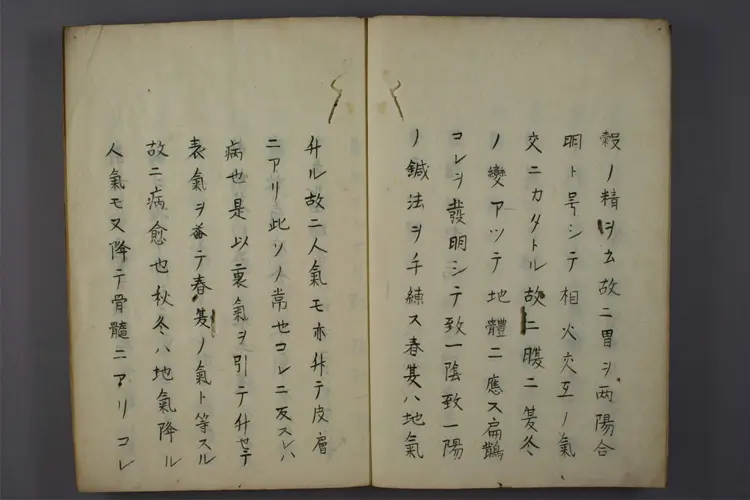 穀ノ精ヲ厶故ニ胃ヲ两陽合
明ト号シテ相火交互ノ氣
交ニカタトル故ニ腹ニ夏冬
ノ變アツテ地體ニ應ス扁鵲
コレヲ發明シテ致一陰致一陽
ノ鍼法ヲ手練ス春夏ハ地氣
升ル故ニ人氣モ亦升テ皮層
ニアリ此ソノ常也コレニ反スレハ
病也是以裏氣ヲ引テ升セテ
表氣ヲ益テ春夏ノ氣ト等スル
故ニ病愈也秋冬ハ地氣降ル
人氣モ又降テ骨髓ニアリコレ